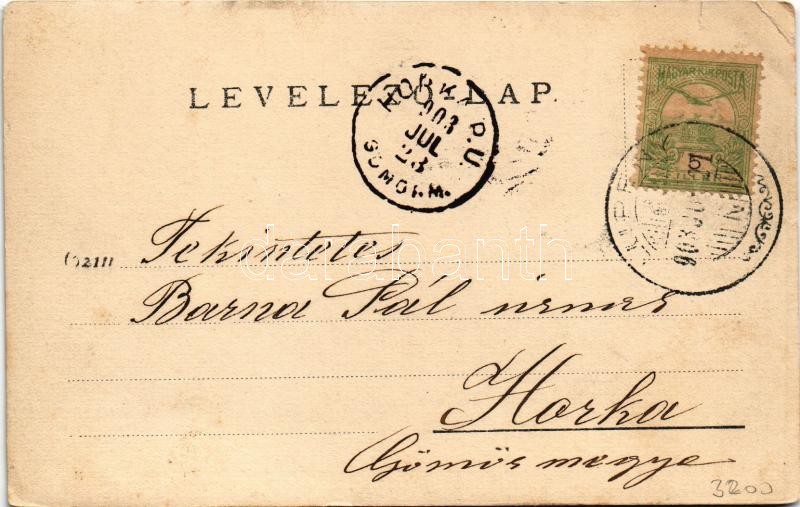 MAGYAR KIR. POSTA
LEVELEZŐ-LAP
HORKA P.U.
903
JUL
23
GÖMÖR M.
903
Tekintetes
Barna Pál úrnak
Horka
Gömör megye
3200
darabanth